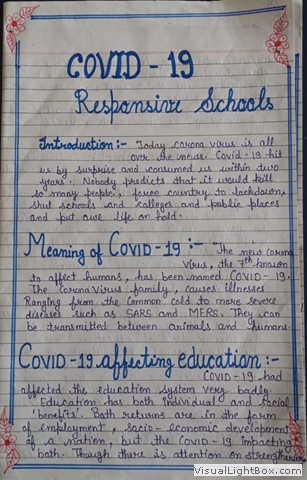 COVID - 19
Responsive Schools
Introduction:- Today corona virus is all
over the news. Covid-19 hit
us by surprise and consumed us within two
years. Nobody predicts that it would kill
so many people, force country to lockdown,
shut schools and colleges and public places
and put our life on hold.
Meaning of COVID-19 :- The new corona
virus, the 7th known
to affect humans, has been named COVID-19.
The corona virus family, causes illnesses
Ranging from the common cold to more severe
diseases such as SARS and MERS. They can
be transmitted between animals and humans.
COVID-19 affecting education :-
COVID-19 had
affected the education system very badly.
Education has both individual and social
'benefits'. Both returns are in the form
of employment, socio-economic development
of a nation, but the COVID-19 impacting
both. Though there is attention on strengthening
VisualLightBox.com